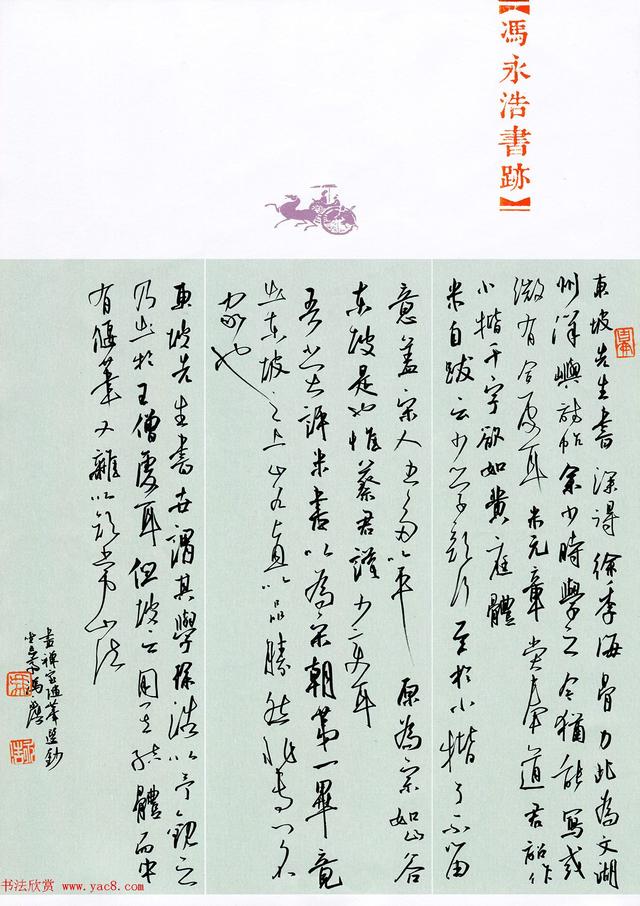 【馮永浩書跡】
東坡先生書深得徐季海骨力此為文湖
州洋嶼詩帖余少時學之今猶能寫或
微有合處耳米元章嘗奉道君詔作
小楷千字欲如黃庭體
米自跋云少學顏行至於小楷了不留
意蓋宋人書多以平原為宗如山谷
東坡是也惟蔡君謨少變耳
吾嘗評米書以為宋朝第一畢竟
出東坡之上山谷直以品勝然非專門名
家也
東坡先生書世謂其學徐浩以予觀之
乃出於王僧虔耳但坡公用其結體而中
有偃筆又雜以顏常山法
畫禪室隨筆選鈔
书法欣赏 www.yac8.com